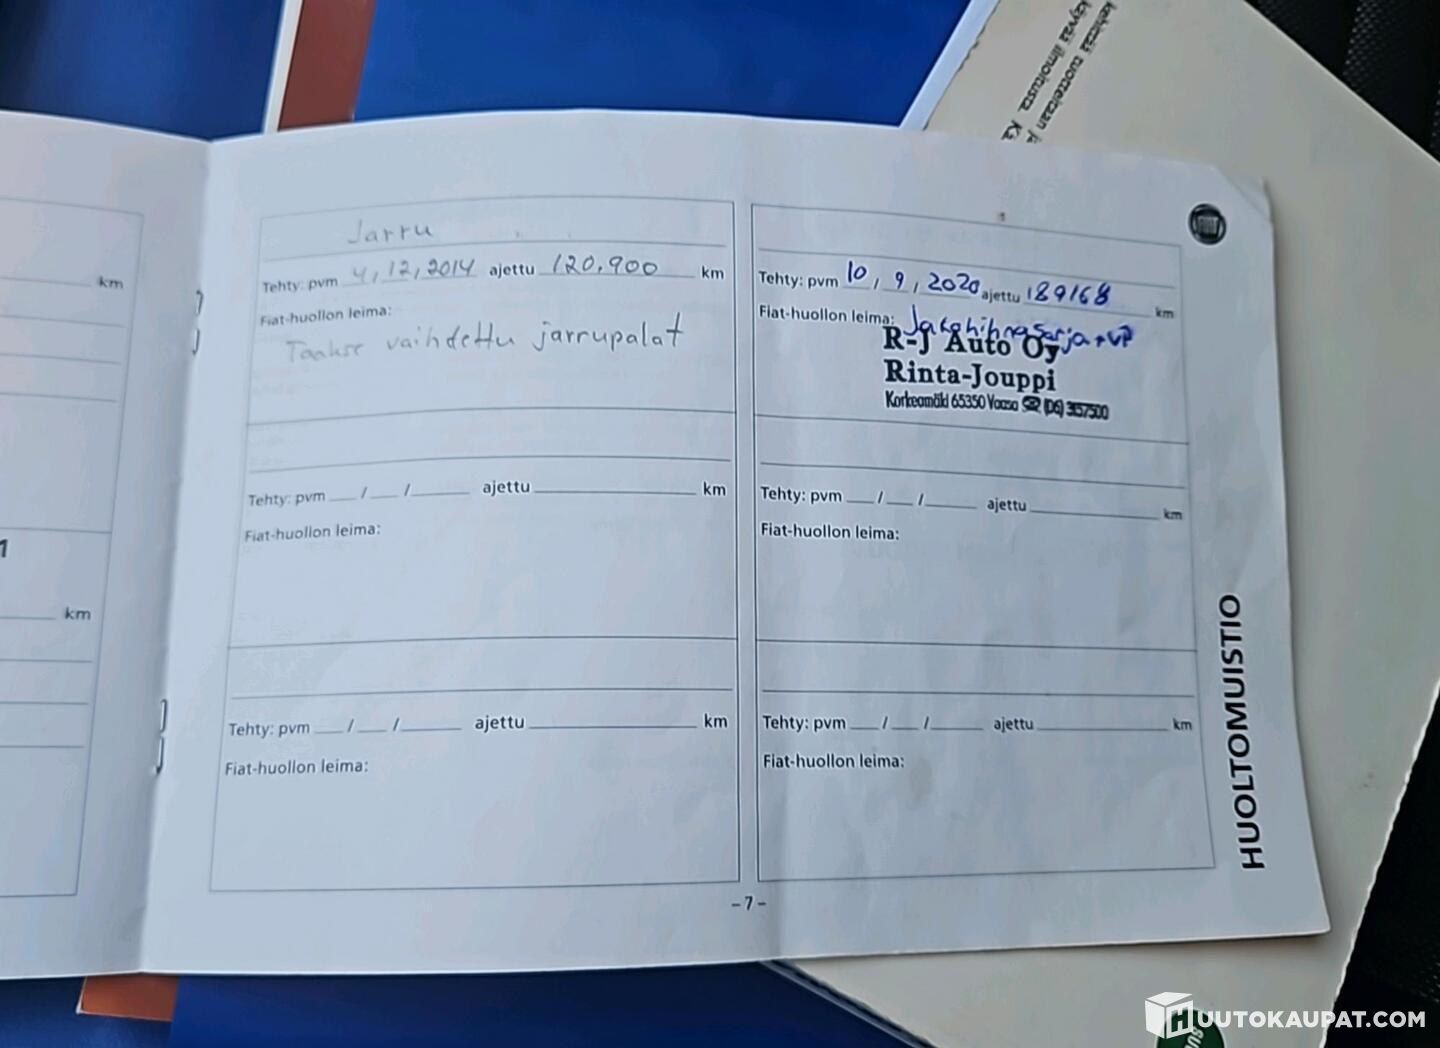 kehittää tuotteitaan ja
käyvää ilmoitusta. Kä
km
1
km
Jarru
Tehty: pvm 4 / 12 / 2014 ajettu 120.900 km
Fiat-huollon leima:
Taakse vaihdettu jarrupalat
Tehty: pvm ___ / ___ / ______ ajettu ______ km
Fiat-huollon leima:
Tehty: pvm ___ / ___ / ______ ajettu ______ km
Fiat-huollon leima:
Tehty: pvm 10 / 9 / 2020 ajettu 189168 km
Fiat-huollon leima: Jakohihnasarja + VP
R-J Auto Oy
Rinta-Jouppi
Korkeamäki 65350 Vaasa ☎ (06) 3157500
Tehty: pvm ___ / ___ / ______ ajettu ______ km
Fiat-huollon leima:
Tehty: pvm ___ / ___ / ______ ajettu ______ km
Fiat-huollon leima:
FIAT
HUOLTOMUISTIO
– 7 –
HUUTOKAUPAT.COM